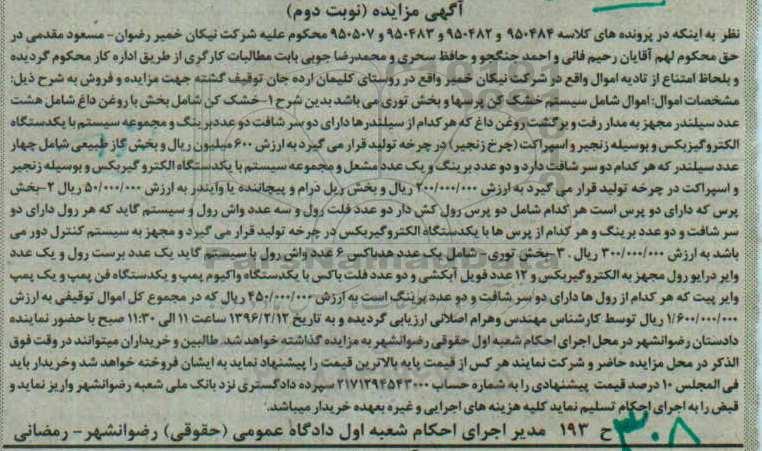 آگهی مزایده (نوبت دوم)
نظر به اینکه در پرونده های کلاسه ۹۵۰۴۸۴ و ۹۵۰۴۸۲ و ۹۵۰۴۸۳ و ۹۵۰۵۰۷ محکوم علیه شرکت نیکان خمیر رضوان- مسعود مقدمی در
حق محکوم لهم آقایان رحیم فانی و احمد جنگجو و حافظ سحری و محمدرضا جوبی بابت مطالبات کارگری از طریق اداره کار محکوم گردیده
و بلحاظ امتناع از تادیه اموال واقع در شرکت نیکان خمیر واقع در روستای کلیمان ارده جان توقیف گشته جهت مزایده و فروش به شرح ذیل:
مشخصات اموال: اموال شامل سیستم خشک کن پرسها و بخش توری می باشد بدین شرح ۱-خشک کن شامل بخش با روغن داغ شامل هشت
عدد سیلندر مجهز به مدار رفت و برگشت روغن داغ که هر کدام از سیلندرها دارای دو سر شافت دو عدد برینگ و مجموعه سیستم با یکدستگاه
الکتروگیربکس و بوسیله زنجیر و اسپراکت (چرخ زنجیر) در چرخه تولید قرار می گیرد به ارزش ۶۰۰ میلیون ریال و بخش گاز طبیعی شامل چهار
عدد سیلندر که هر کدام دو سر شافت دارد و دو عدد برینگ و یک عدد مشعل و مجموعه سیستم با یکدستگاه الکترو گیربکس و بوسیله زنجیر
و اسپراکت در چرخه تولید قرار می گیرد به ارزش ۲۰۰/۰۰۰/۰۰۰ ریال و بخش ریل درام و پیچاننده یا وایندر به ارزش ۵۰/۰۰۰/۰۰۰ ریال ۲-بخش
پرس که دارای دو پرس است هر کدام شامل دو پرس رول کش دار دو عدد فلت رول و سه عدد واش رول و سیستم گاید که هر رول دارای دو
سر شافت و دو عدد برینگ و هر کدام از پرس ها با یکدستگاه الکتروگیربکس در چرخه تولید قرار می گیرد و مجهز به سیستم کنترل دور می
باشد به ارزش ۳۰۰/۰۰۰/۰۰۰ ریال . ۳-بخش توری - شامل یک عدد هدباکس ۶ عدد واش رول با سیستم گاید یک عدد برست رول و یک عدد
وایر درایو رول مجهز به الکتروگیربکس و ۱۲ عدد فویل آبکشی و دو عدد فلت باکس با یکدستگاه واکیوم پمپ و یکدستگاه فن پمپ و یک پمپ
وایر پیت که هر کدام از رول ها دارای دو سر شافت و دو عدد برینگ است به ارزش ۴۵۰/۰۰۰/۰۰۰ ریال که در مجموع کل اموال توقیفی به ارزش
۱/۶۰۰/۰۰۰/۰۰۰ ریال توسط کارشناس مهندس وهرام اصلانی ارزیابی گردیده و به تاریخ ۱۳۹۶/۲/۱۲ ساعت ۱۱ الی ۱۱:۳۰ صبح با حضور نماینده
دادستان رضوانشهر در محل اجرای احکام شعبه اول حقوقی رضوانشهر به مزایده گذاشته خواهد شد. طالبین و خریداران میتوانند در وقت فوق
الذکر در محل مزایده حاضر و شرکت نمایند هر کس از قیمت پایه بالاترین قیمت را پیشنهاد نماید به ایشان فروخته خواهد شد و خریدار باید
فی المجلس ۱۰ درصد قیمت پیشنهادی را به شماره حساب ۲۱۷۱۲۹۴۵۴۳۰۰۰ سپرده دادگستری نزد بانک ملی شعبه رضوانشهر واریز نماید و
قبض را به اجرای احکام تسلیم نماید کلیه هزینه های اجرایی و غیره بعهده خریدار میباشد.
ح ۱۹۳ مدیر اجرای احکام شعبه اول دادگاه عمومی (حقوقی) رضوانشهر- رمضانی
۳۰۸